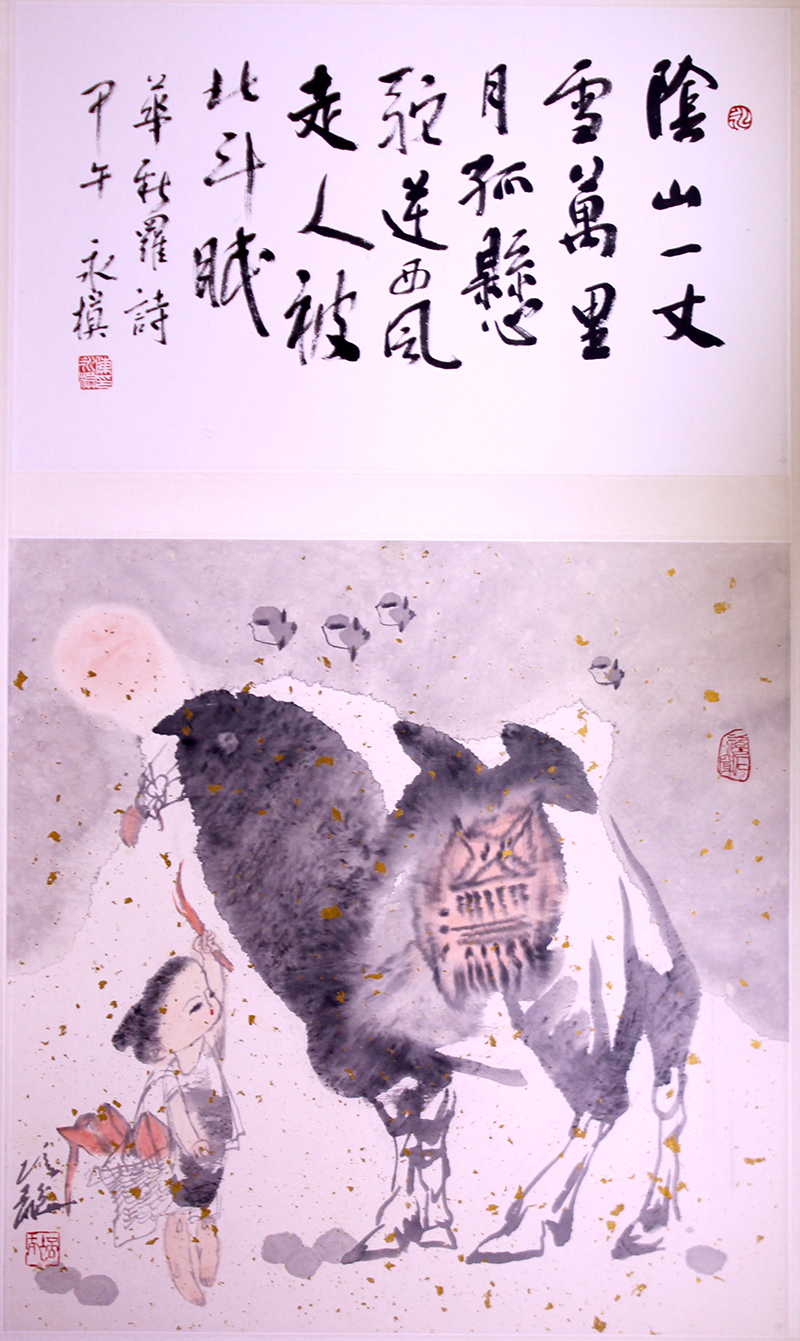 陰山一丈
雪萬里
月孤懸
駝逆西風
走人被
北斗眠
華新羅詩
甲午 永